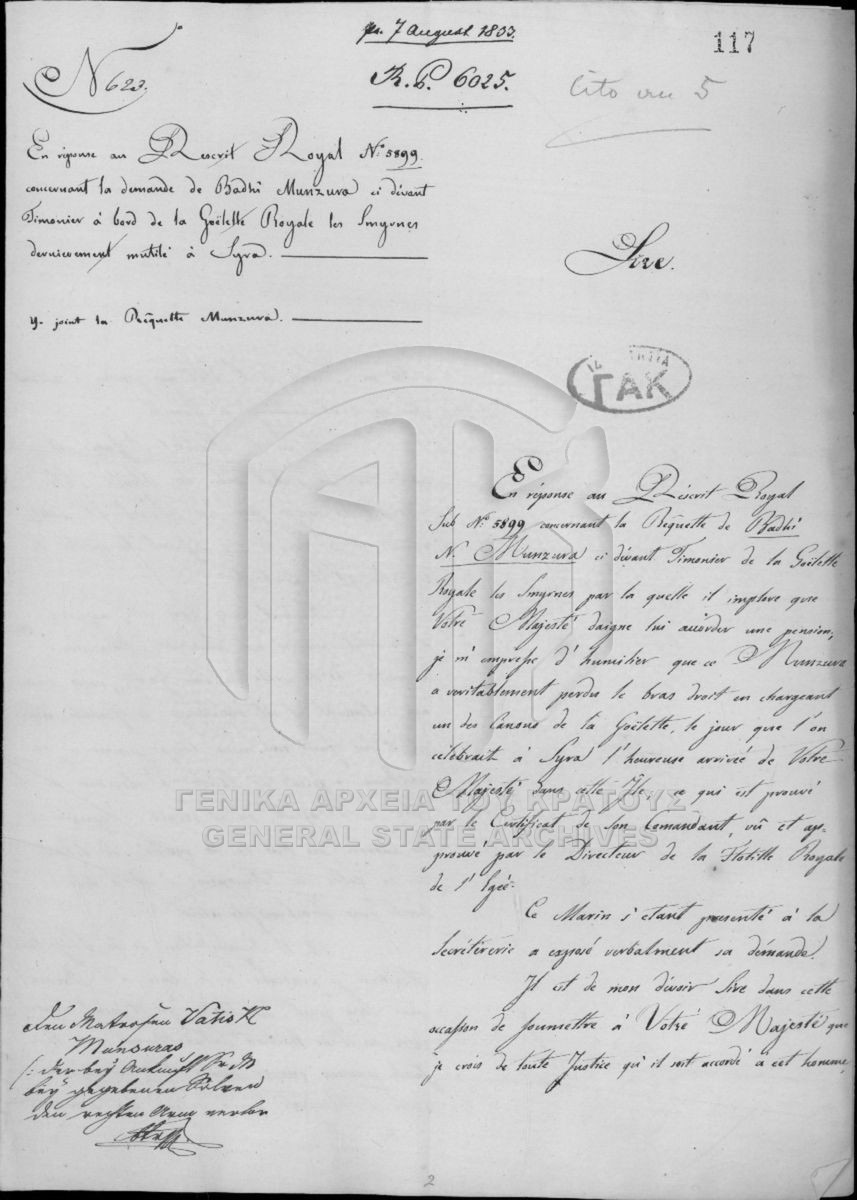 pr. 7 August 1833.
117
N 623.
R. P. 6025.
Cito au 5
En réponse au Rescrit Royal No. 5899.
concernant la demande de Badhî Munzura ci dévant
Timonier à bord de la Goëlette Royale les Smyrnes
dernierement mutilé à Syra.
Sire.
y. joint la Rêquette Munzura.
ΓΑΚ
En réponse au Réscrit Royal
Sub No. 5899, concernant la Rêquette de Badhî
N. Munzura ci dévant Timonier de la Goëlette
Royale les Smyrnes par la quelle il implore que
Votre Majesté daigne lui accorder une pension,
je m'empresse d'humilier que ce Munzura
a veritablement perdu le bras droit en chargeant
un des Canons de la Goëlette, le jour que l'on
célébrait à Syra l'heureuse arrivée de Votre
Majesté dans cette Ile, ce qui est prouvé
par le Certificat de son Comandant, vû et ap-
prouvé par le Directeur de la Flotille Royale
de l'Egée.
Ce Marin s'etant presenté à la
Secrétérerie a exposé verbalment sa démande.
Il est de mon dévoir Sire dans cette
occasion de soumettre à Votre Majesté que
je crois de toute Justice qu'il soit accordé à cet homme,
ΓΕΝΙΚΑ ΑΡΧΕΙΑ ΤΟΥ ΚΡΑΤΟΥΣ
GENERAL STATE ARCHIVES
Den Matrosen Vatis K
Munsuras
/: der bey Ankunft Sr M
bey gegebenen Salven
den rechten Arm verlor
2